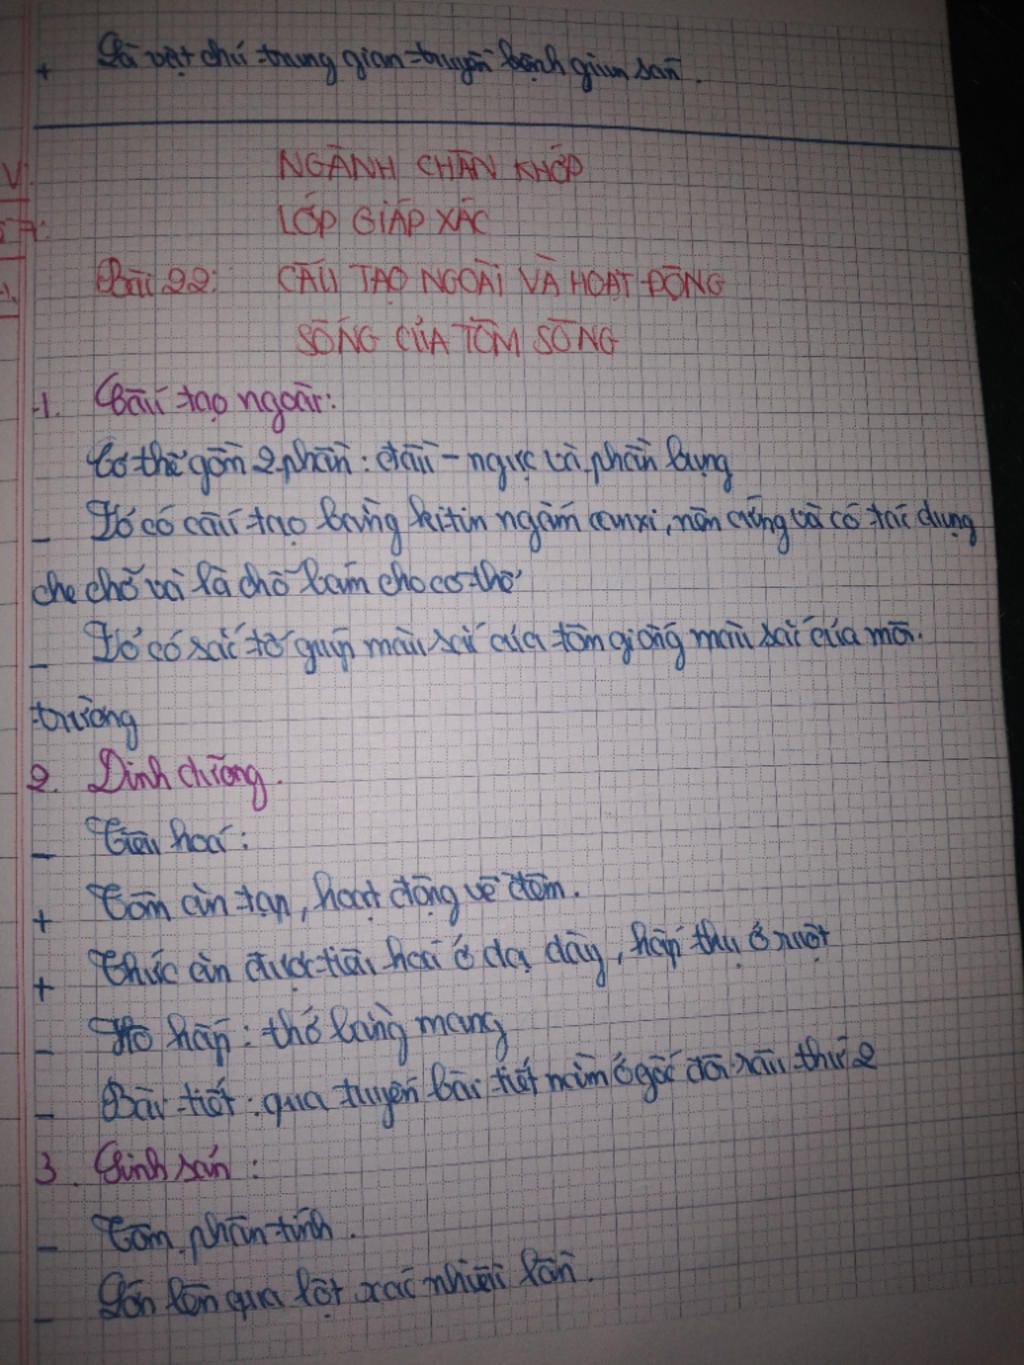 + Là vật chủ trung gian truyền bệnh giun sán.
NGÀNH CHÂN KHỚP
LỚP GIÁP XÁC
Bài 22: CẤU TẠO NGOÀI VÀ HOẠT ĐỘNG
SỐNG CỦA TÔM SÔNG
1. Cấu tạo ngoài:
Cơ thể gồm 2 phần: đầu - ngực và phần bụng
- Vỏ có cấu tạo bằng kitin ngấm canxi, nên cứng và có tác dụng
che chở và là chỗ bám cho cơ thể
- Vỏ có sắc tố giúp màu sắc của tôm giống màu sắc của môi
trường
2. Dinh dưỡng.
- Tiêu hoá:
+ Tôm ăn tạp, hoạt động về đêm.
+ Thức ăn được tiêu hoá ở dạ dày, hấp thụ ở ruột
- Hô hấp: thở bằng mang
- Bài tiết: qua tuyến bài tiết nằm ở gốc đôi râu thứ 2
3. Sinh sản:
- Tôm phân tính.
- Lớn lên qua lột xác nhiều lần.